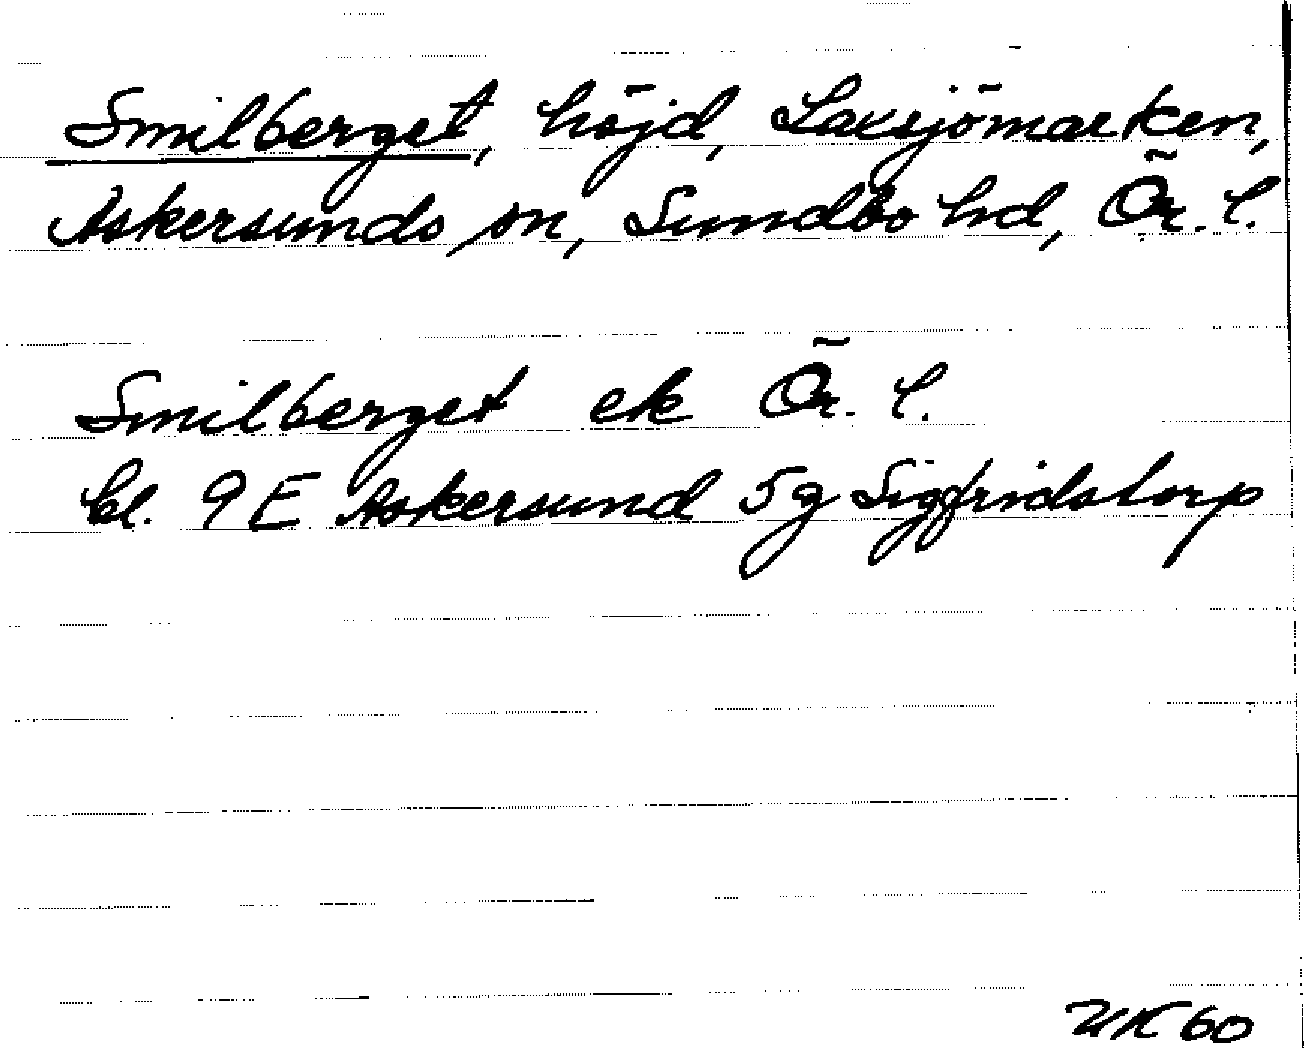 Smilberget, höjd, Laxsjömarken,
Askersunds sn, Sundbo hd, Ör. l.
Smilberget ek Ör. l.
bl. 9 E Askersund 5 g Sigfridstorp
60